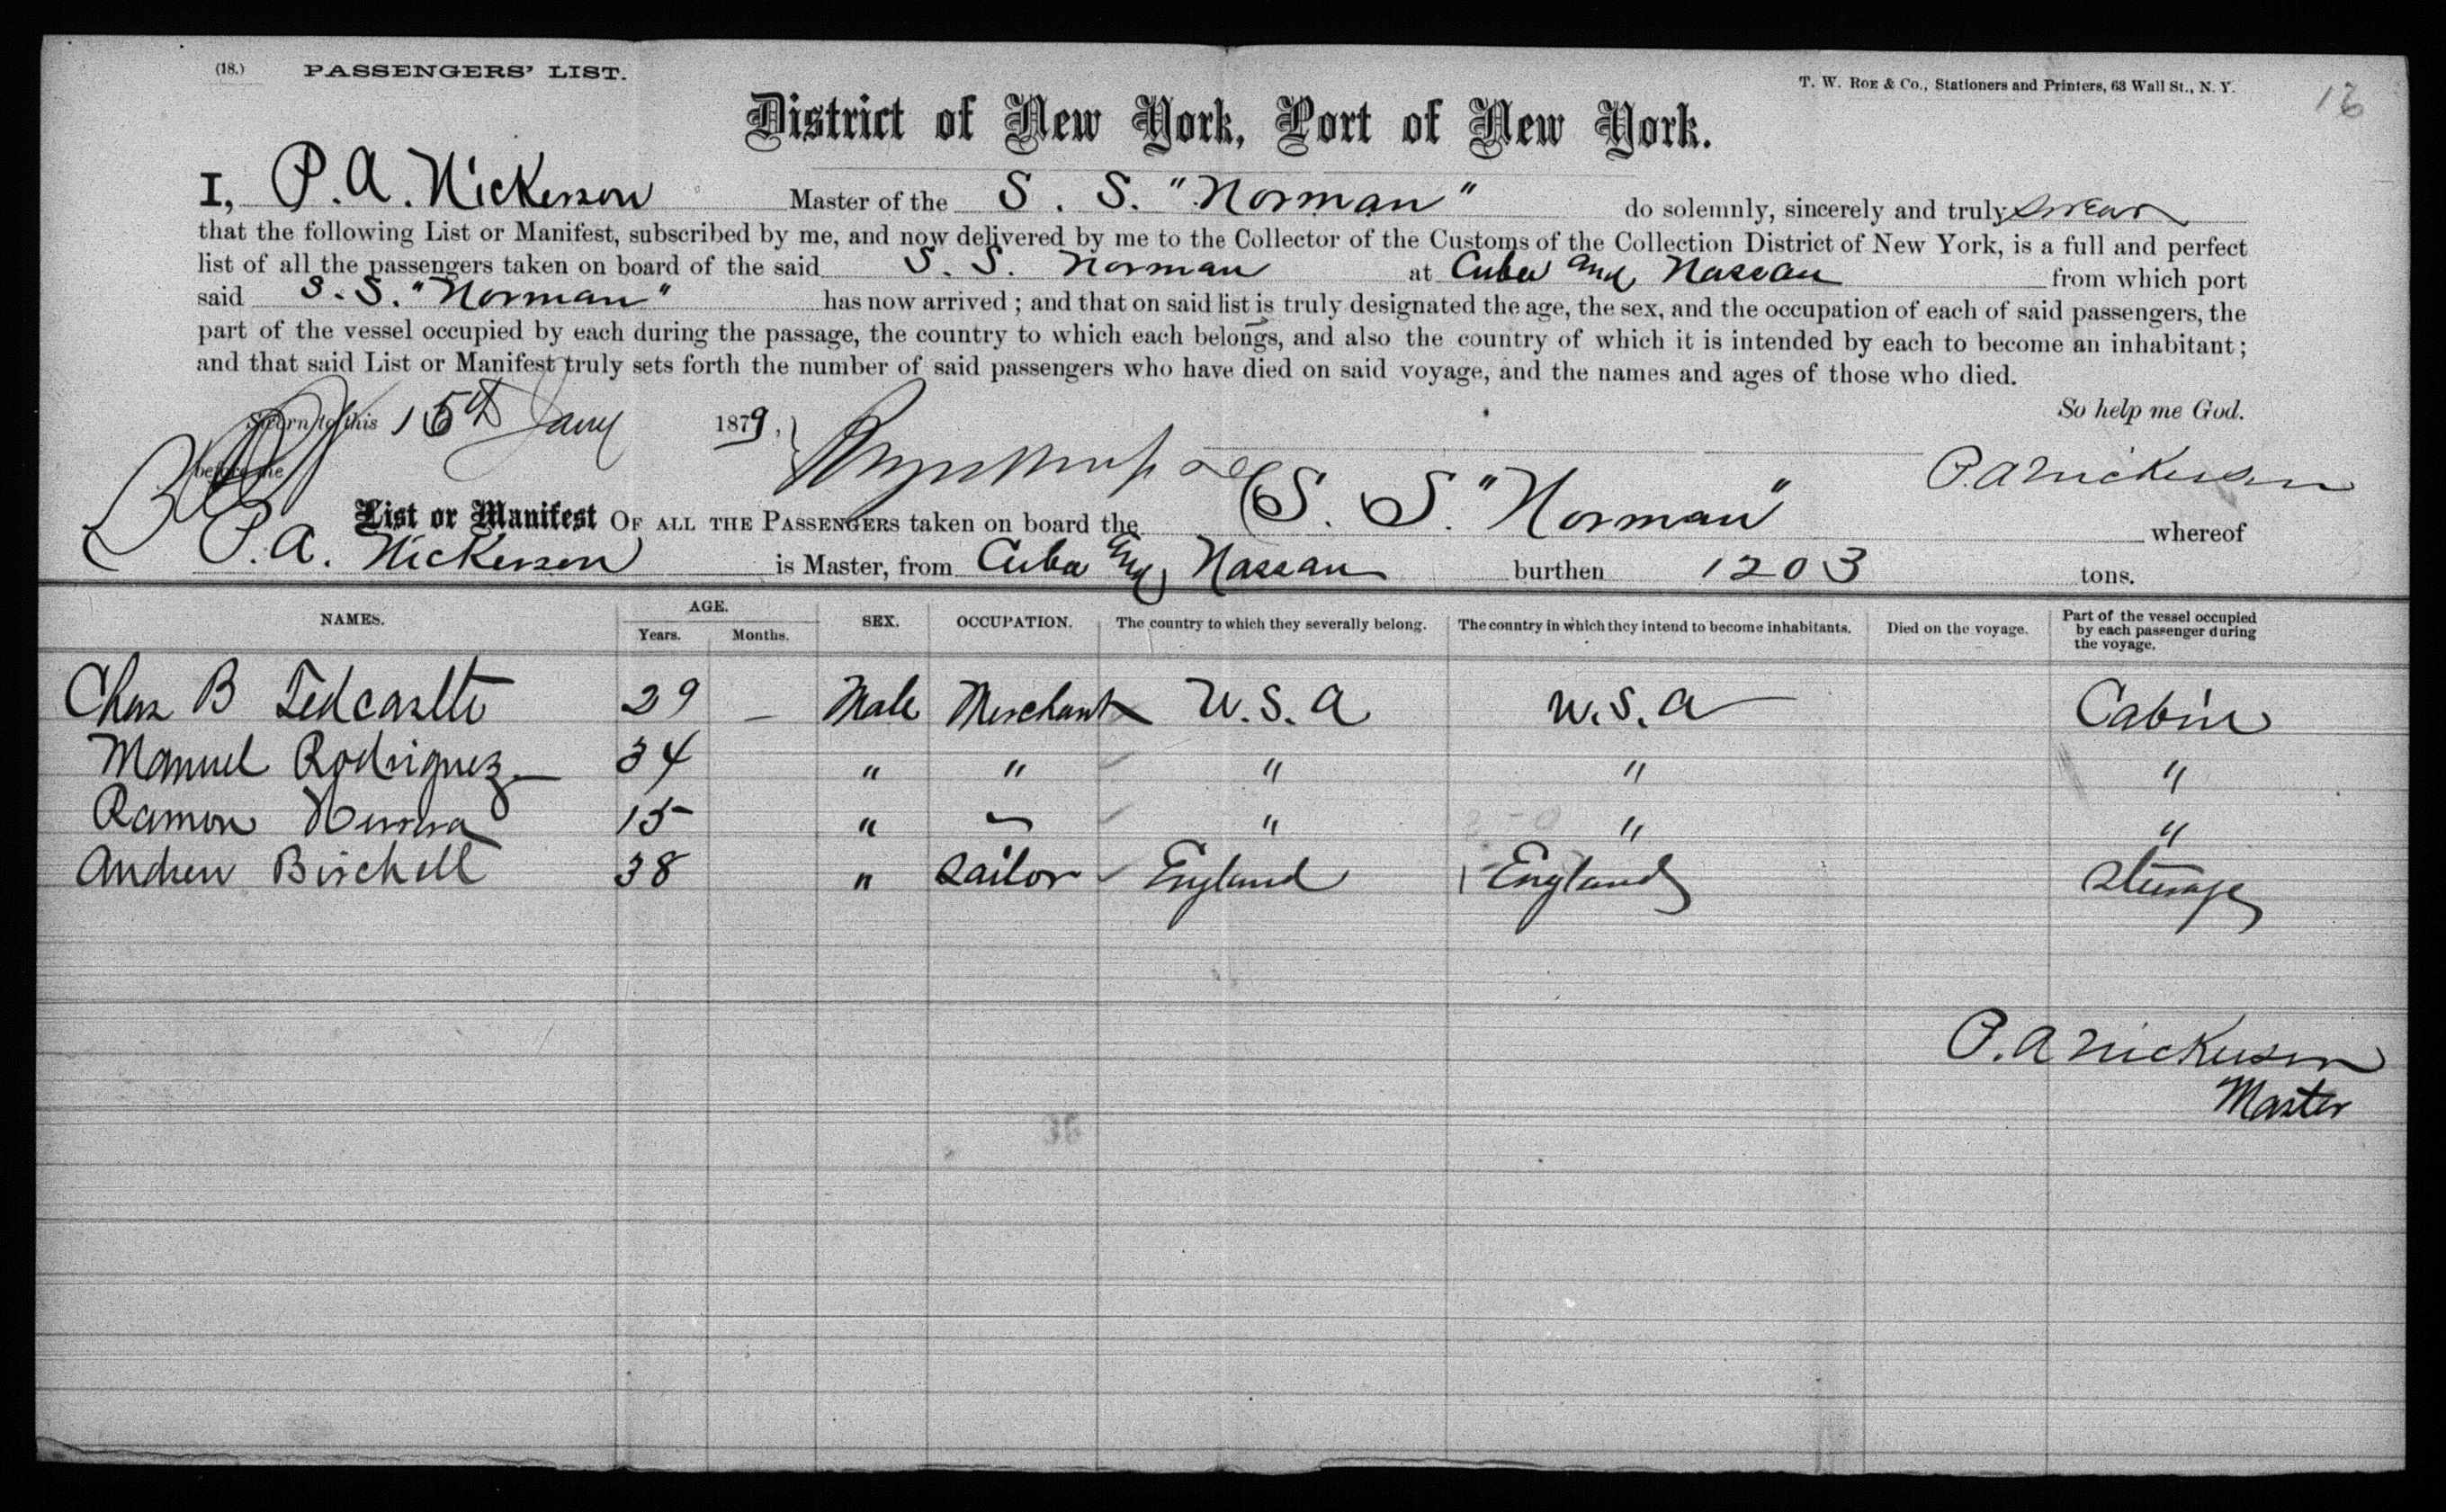 (18.) PASSENGERS' LIST.
T. W. Roe & Co., Stationers and Printers, 63 Wall St., N. Y.
16
District of New York, Port of New York.
I, P. A. Nickerson Master of the S. S. "Norman" do solemnly, sincerely and truly swear
that the following List or Manifest, subscribed by me, and now delivered by me to the Collector of the Customs of the Collection District of New York, is a full and perfect
list of all the passengers taken on board of the said S. S. Norman at Cuba and Nassau from which port
said S. S. "Norman" has now arrived; and that on said list is truly designated the age, the sex, and the occupation of each of said passengers, the
part of the vessel occupied by each during the passage, the country to which each belongs, and also the country of which it is intended by each to become an inhabitant;
and that said List or Manifest truly sets forth the number of said passengers who have died on said voyage, and the names and ages of those who died.
So help me God.
Sworn to this 15th Jany 1879,
before me
P. A Nickerson
List or Manifest OF ALL THE PASSENGERS taken on board the S. S. "Norman" whereof
P. A. Nickerson is Master, from Cuba and Nassau burthen 1203 tons.
NAMES. AGE. Years. Months. SEX. OCCUPATION. The country to which they severally belong. The country in which they intend to become inhabitants. Died on the voyage. Part of the vessel occupied by each passenger during the voyage.
Chas B Tedcastle 29 — Male Merchant U.S.A U.S.A Cabin
Manuel Rodriguez 34 " " " " "
Ramon Herrera 15 " " " "
Andrew Birchell 38 " Sailor England England Steerage
P. A Nickerson
Master